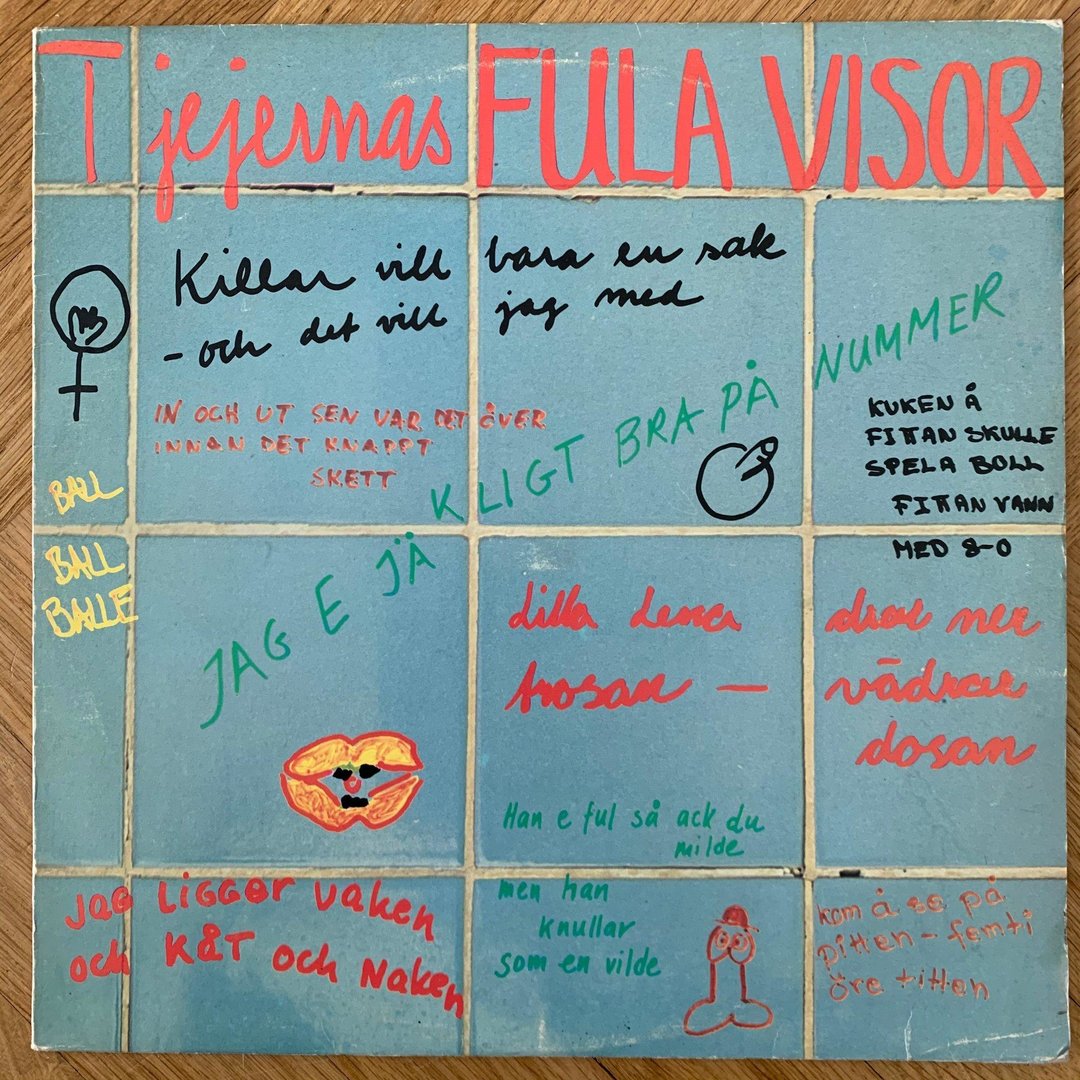 Tjejernas FULA VISOR
Killar vill bara en sak
- och det vill jag med
IN OCH UT SEN VAR DET ÖVER
INNAN DET KNAPPT
SKETT
JAG E JÄKLIGT BRA PÅ NUMMER
KUKEN Å
FITTAN SKULLE
SPELA BOLL
FITTAN VANN
MED 8-0
BALL
BALL
BALLE
Lilla Lena drar ner
trosan — vädrar
dosan
Han e ful så ack du
milde
men han
knullar
som en vilde
Jag LIGGER vaken
och KÅT och Naken
kom å se på
pitten - femti
öre titten